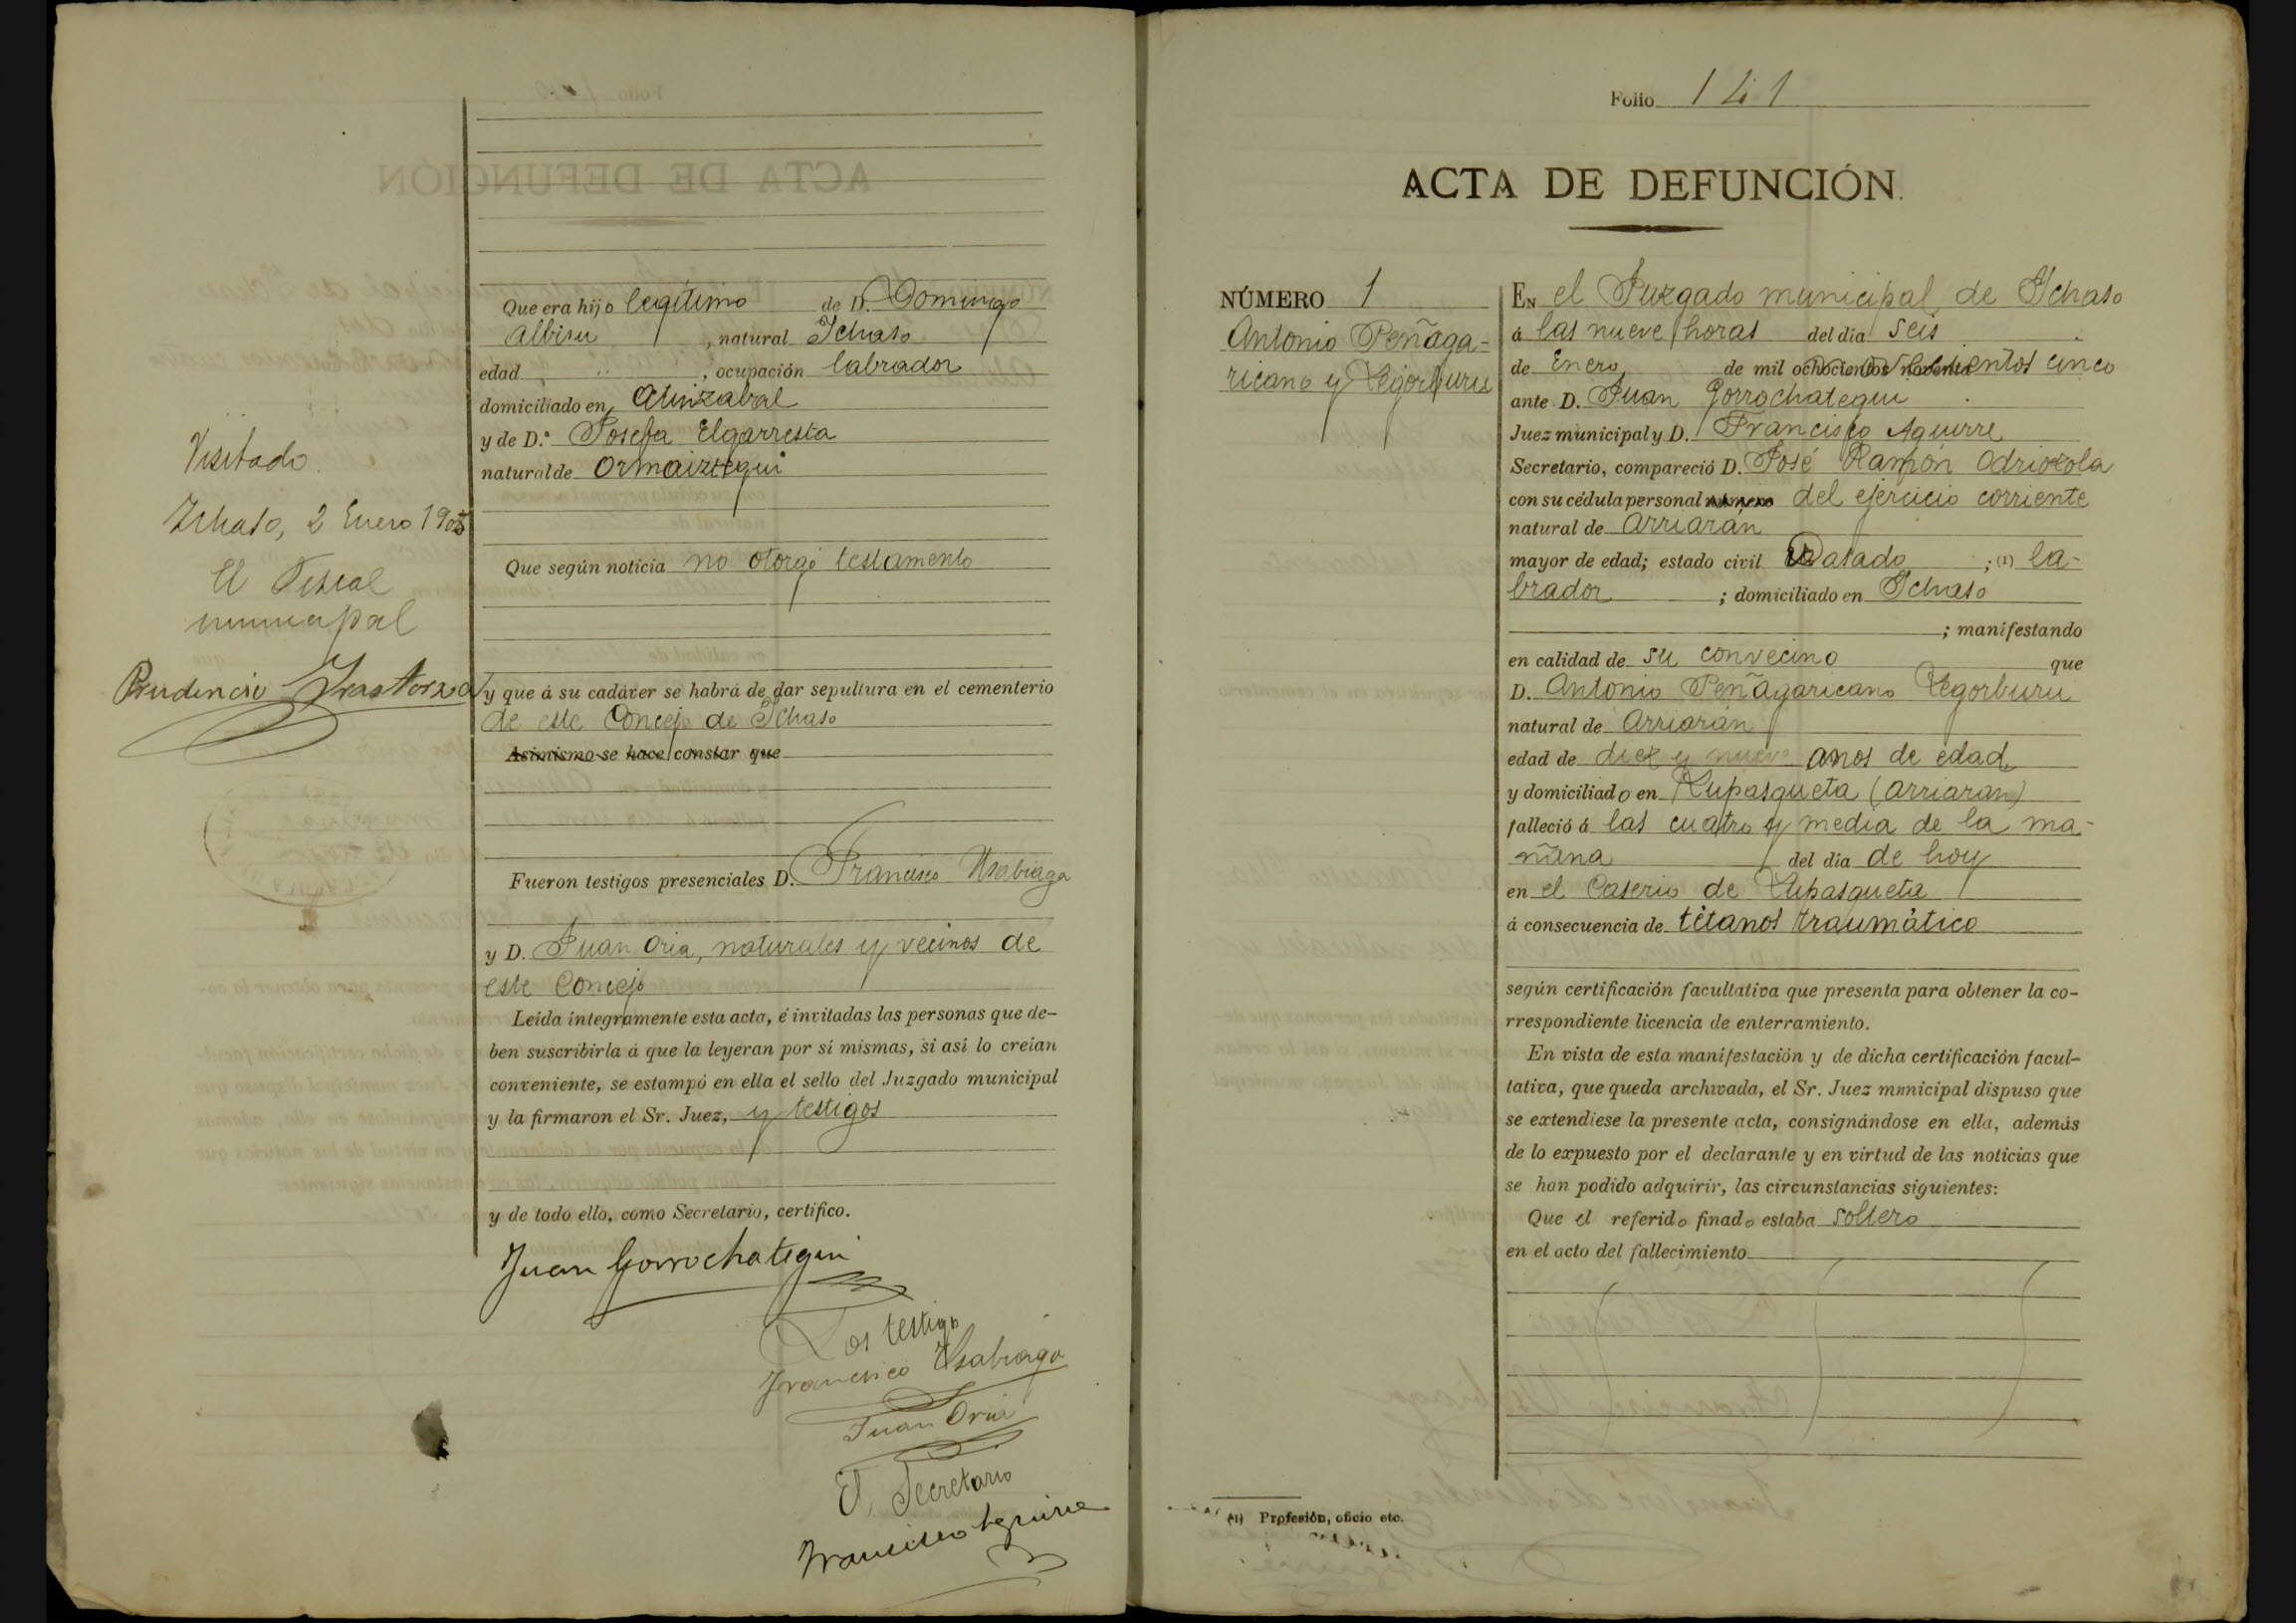 Que era hijo legítimo de D. Domingo
Albisu, natural Ichaso
edad , ocupación labrador
domiciliado en Atinzabal
y de D.ª Josefa Elgarresta
natural de Ormaiztegui
Que según noticia no otorgó testamento
y que á su cadáver se habrá de dar sepultura en el cementerio
de este Concejo de Ichaso
Asimismo se hace constar que
Fueron testigos presenciales D. Francisco Usabiaga
y D. Juan Oria, naturales y vecinos de
este Concejo
Leída íntegramente esta acta, é invitadas las personas que de-
ben suscribirla á que la leyeran por sí mismas, si así lo creían
conveniente, se estampó en ella el sello del Juzgado municipal
y la firmaron el Sr. Juez, y testigos
y de todo ello, como Secretario, certifico.
Juan Gorrochategui
Los testigos
Francisco Usabiaga
Juan Oria
El Secretario
Francisco Aguirre
Visitado
Ichaso, 2 Enero 1905
El Fiscal
municipal
Prudencio Irastorza
Folio 141
ACTA DE DEFUNCIÓN.
NÚMERO 1
Antonio Peñaga-
ricano y Legorburu
EN el Juzgado municipal de Ichaso
á las nueve horas del día seis
de Enero de mil ochocientos noventa novecientos cinco
ante D. Juan Gorrochategui
Juez municipal y D. Francisco Aguirre
Secretario, compareció D. José Ramón Odriozola
con su cédula personal número del ejercicio corriente
natural de Arriarán
mayor de edad; estado civil Casado ; (1) la-
brador ; domiciliado en Ichaso
; manifestando
en calidad de su convecino que
D. Antonio Peñagaricano Legorburu
natural de Arriarán
edad de diez y nueve años de edad
y domiciliado en Lupasqueta (Arriaran)
falleció á las cuatro y media de la ma-
ñana del día de hoy
en el Caserio de Lupasqueta
á consecuencia de tétanos traumático
según certificación facultativa que presenta para obtener la co-
rrespondiente licencia de enterramiento.
En vista de esta manifestación y de dicha certificación facul-
tativa, que queda archivada, el Sr. Juez mnnicipal dispuso que
se extendiese la presente acta, consignándose en ella, además
de lo expuesto por el declarante y en virtud de las noticias que
se han podido adquirir, las circunstancias siguientes:
Que el referido finado estaba soltero
en el acto del fallecimiento
(1) Profesión, oficio etc.